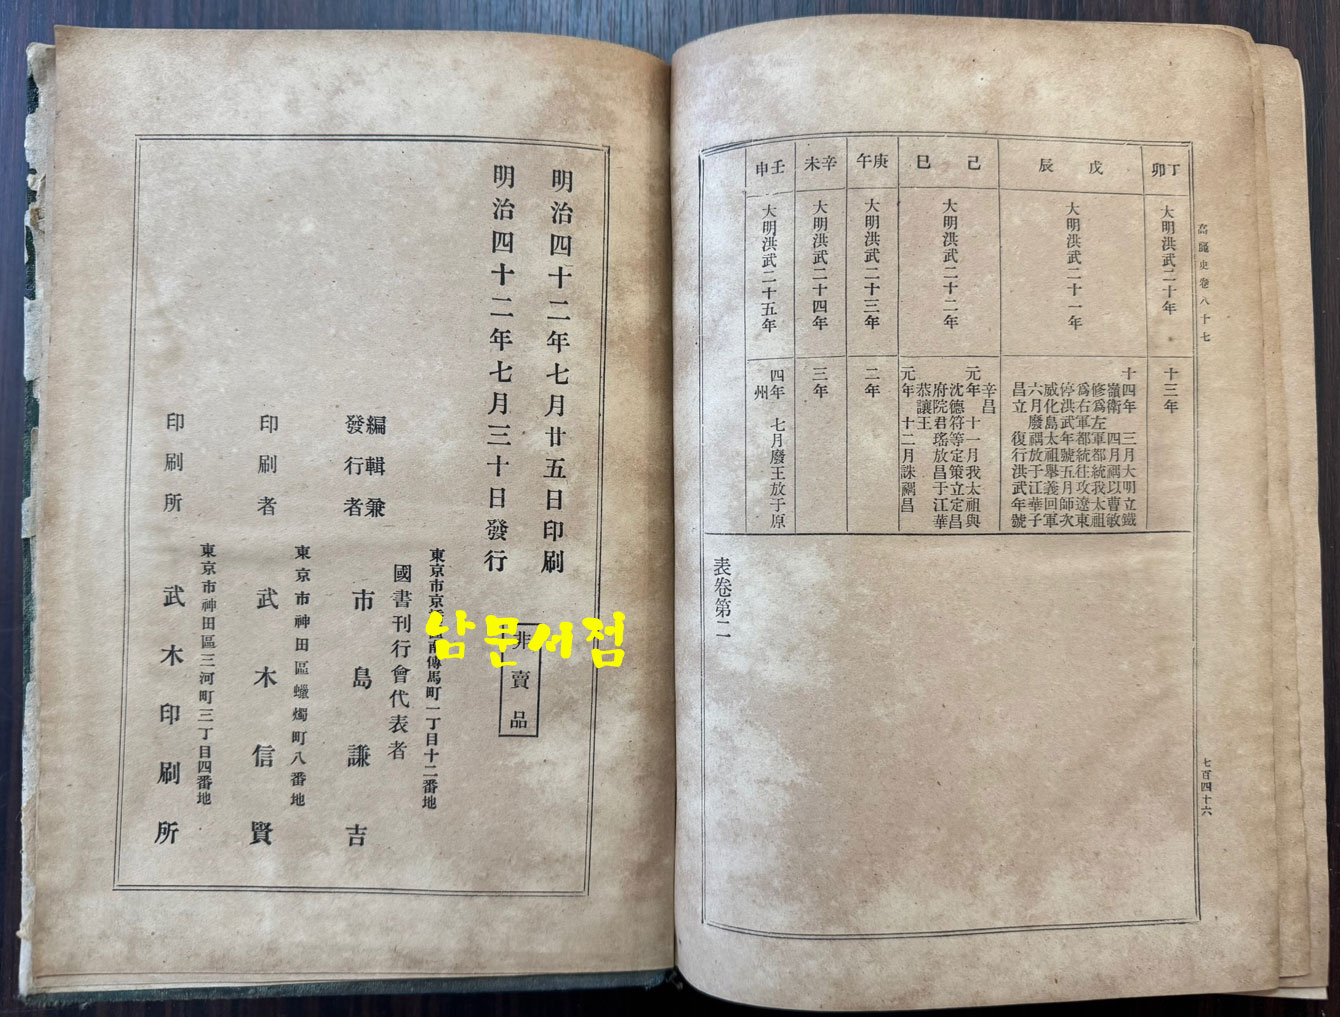 高麗史卷八十七
七百四十六
丁卯
大明洪武二十年
十三年
戊辰
大明洪武二十一年
十四年 三月大明立鐵
嶺衛 四月禑以曹敏
修爲左軍都統我太祖
爲右軍都統往攻遼東
停洪武年號五月師次
威化島太祖擧義回軍
六月廢禑放于江華子
昌立 復行洪武年號
己巳
大明洪武二十二年
辛昌
元年 十一月我太祖與
沈德符等定策立定昌
府院君瑤放昌于江華
恭讓王
元年 十二月誅禑昌
庚午
大明洪武二十三年
二年
辛未
大明洪武二十四年
三年
壬申
大明洪武二十五年
四年 七月廢王放于原
州
表卷第二
明治四十二年七月廿五日印刷
明治四十二年七月三十日發行
非賣品
東京市京 南傳馬町一丁目十二番地
國書刊行會代表者
編輯兼
發行者
市島謙吉
東京市神田區蠟燭町八番地
印刷者
武木信賢
東京市神田區三河町三丁目四番地
印刷所
武木印刷所
남문서점